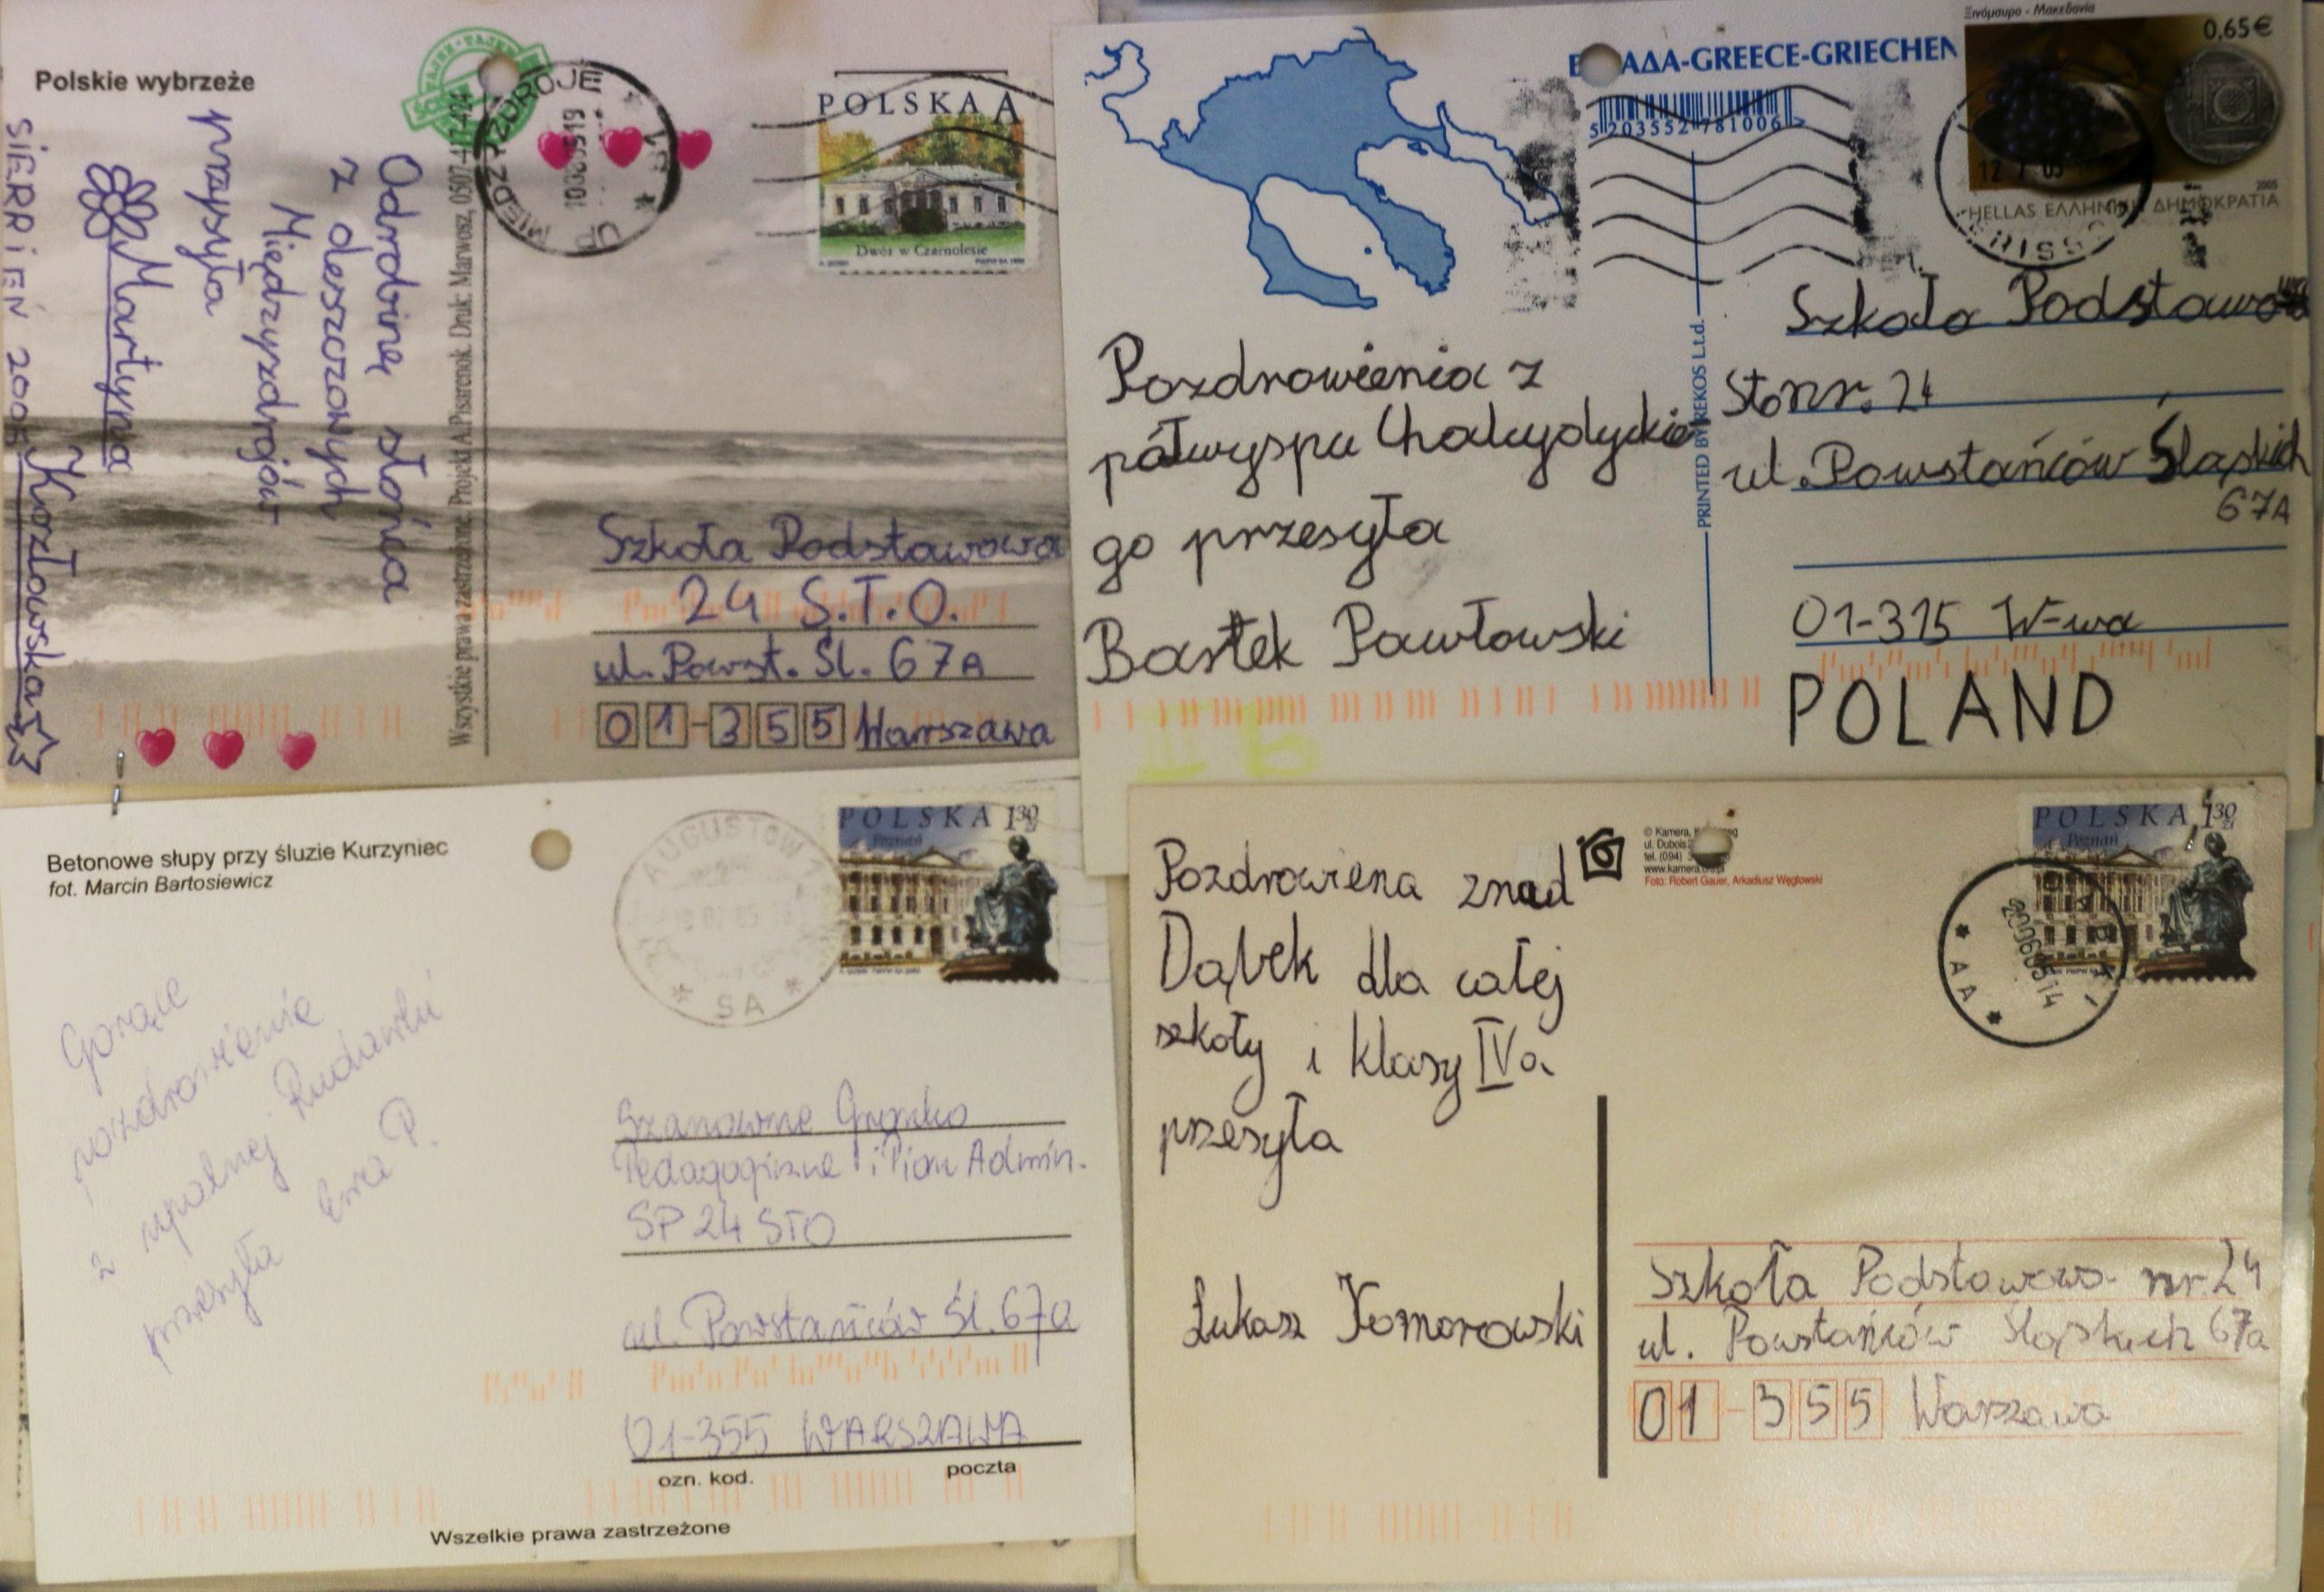 Polskie wybrzeże
Odrobinę słońca
z deszczowych
Międzyzdrojów
przesyła
Martyna
Kozłowska
SIERPIEŃ 2005
Wszystkie prawa zastrzeżone. Projekt A.Pisarenok. Druk: Marwosz,
MIĘDZYZDROJE
UP
POLSKA A
Dwór w Czarnolesie
Szkoła Podstawowa
24 S.T.O.
ul. Powst. Śl. 67A
01-355 Warszawa
ΑΔΑ-GREECE-GRIECHEN
5 203552 781006
Ξινόμαυρο - Μακεδονία
0,65€
2005
HELLAS ΕΛΛΗΝΙΚΗ ΔΗΜΟΚΡΑΤΙΑ
Pozdrowienia z
półwyspu Chalcydyckie
go przesyła
Bartek Pawłowski
PRINTED BY REKOS L.t.d.
Szkoła Podstawowa
Sto nr. 24
ul. Powstańców Śląskich
67A
01-315 W-wa
POLAND
Betonowe słupy przy śluzie Kurzyniec
fot. Marcin Bartosiewicz
AUGUSTÓW
SA
POLSKA 130 zł
Poznań
Gorące
pozdrowienia
z upalnej Rudawki
przesyła Ewa P.
Szanowne Grono
Pedagogiczne i Pion Admin.
SP 24 STO
ul. Powstańców Śl. 67a
01-355 WARSZAWA
ozn. kod. poczta
Wszelkie prawa zastrzeżone
Pozdrowiena znad
Dąbek dla całej
szkoły i klasy IVa
przesyła
Łukasz Komorowski
© Kamera,
ul. Dubois
tel. (094)
www.kamera.
Foto: Robert Gauer, Arkadiusz Węglowski
POLSKA 130 zł
Poznań
AA
Szkoła Podstawowa nr. 24
ul. Powstańców Śląskich 67a
01-355 Warszawa